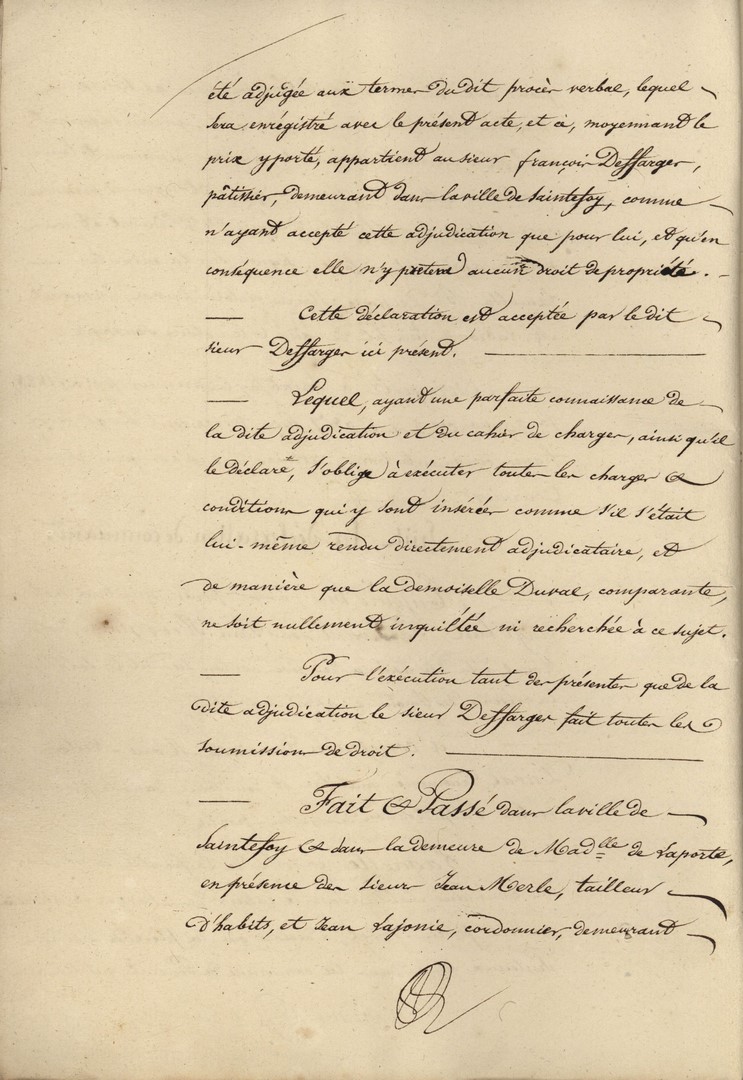 été adjugée aux termes du dit procès verbal, lequel
sera enrégistré avec le présent acte, et à, moyennant le
prix y porté, appartient au sieur françois Deffarges,
pâtissier, demeurant dans la ville de Saintefoy, comme
n'ayant accepté cette adjudication que pour lui, et qu'en
conséquence elle n'y prétend aucun droit de propriété.
Cette déclaration est acceptée par le dit
sieur Deffarges ici présent.
Lequel, ayant une parfaite connaissance de
la dite adjudication et du cahier de charges, ainsi qu'il
le déclare, s'oblige à exécuter toutes les charges &
conditions qui y sont insérées comme s'il s'était
lui-même rendu directement adjudicataire, et
de manière que la demoiselle Duval, comparante,
ne soit nullement inquiétée ni recherchée à ce sujet.
Pour l'exécution tant des présentes que de la
dite adjudication le sieur Deffarges fait toutes les
soumissions de droit.
Fait & Passé dans la ville de
Saintefoy & dans la demeure de Madlle de Laporte,
en présence des sieurs Jean Merle, tailleur
d'habits, et Jean Lajonie, cordonnier, demeurant